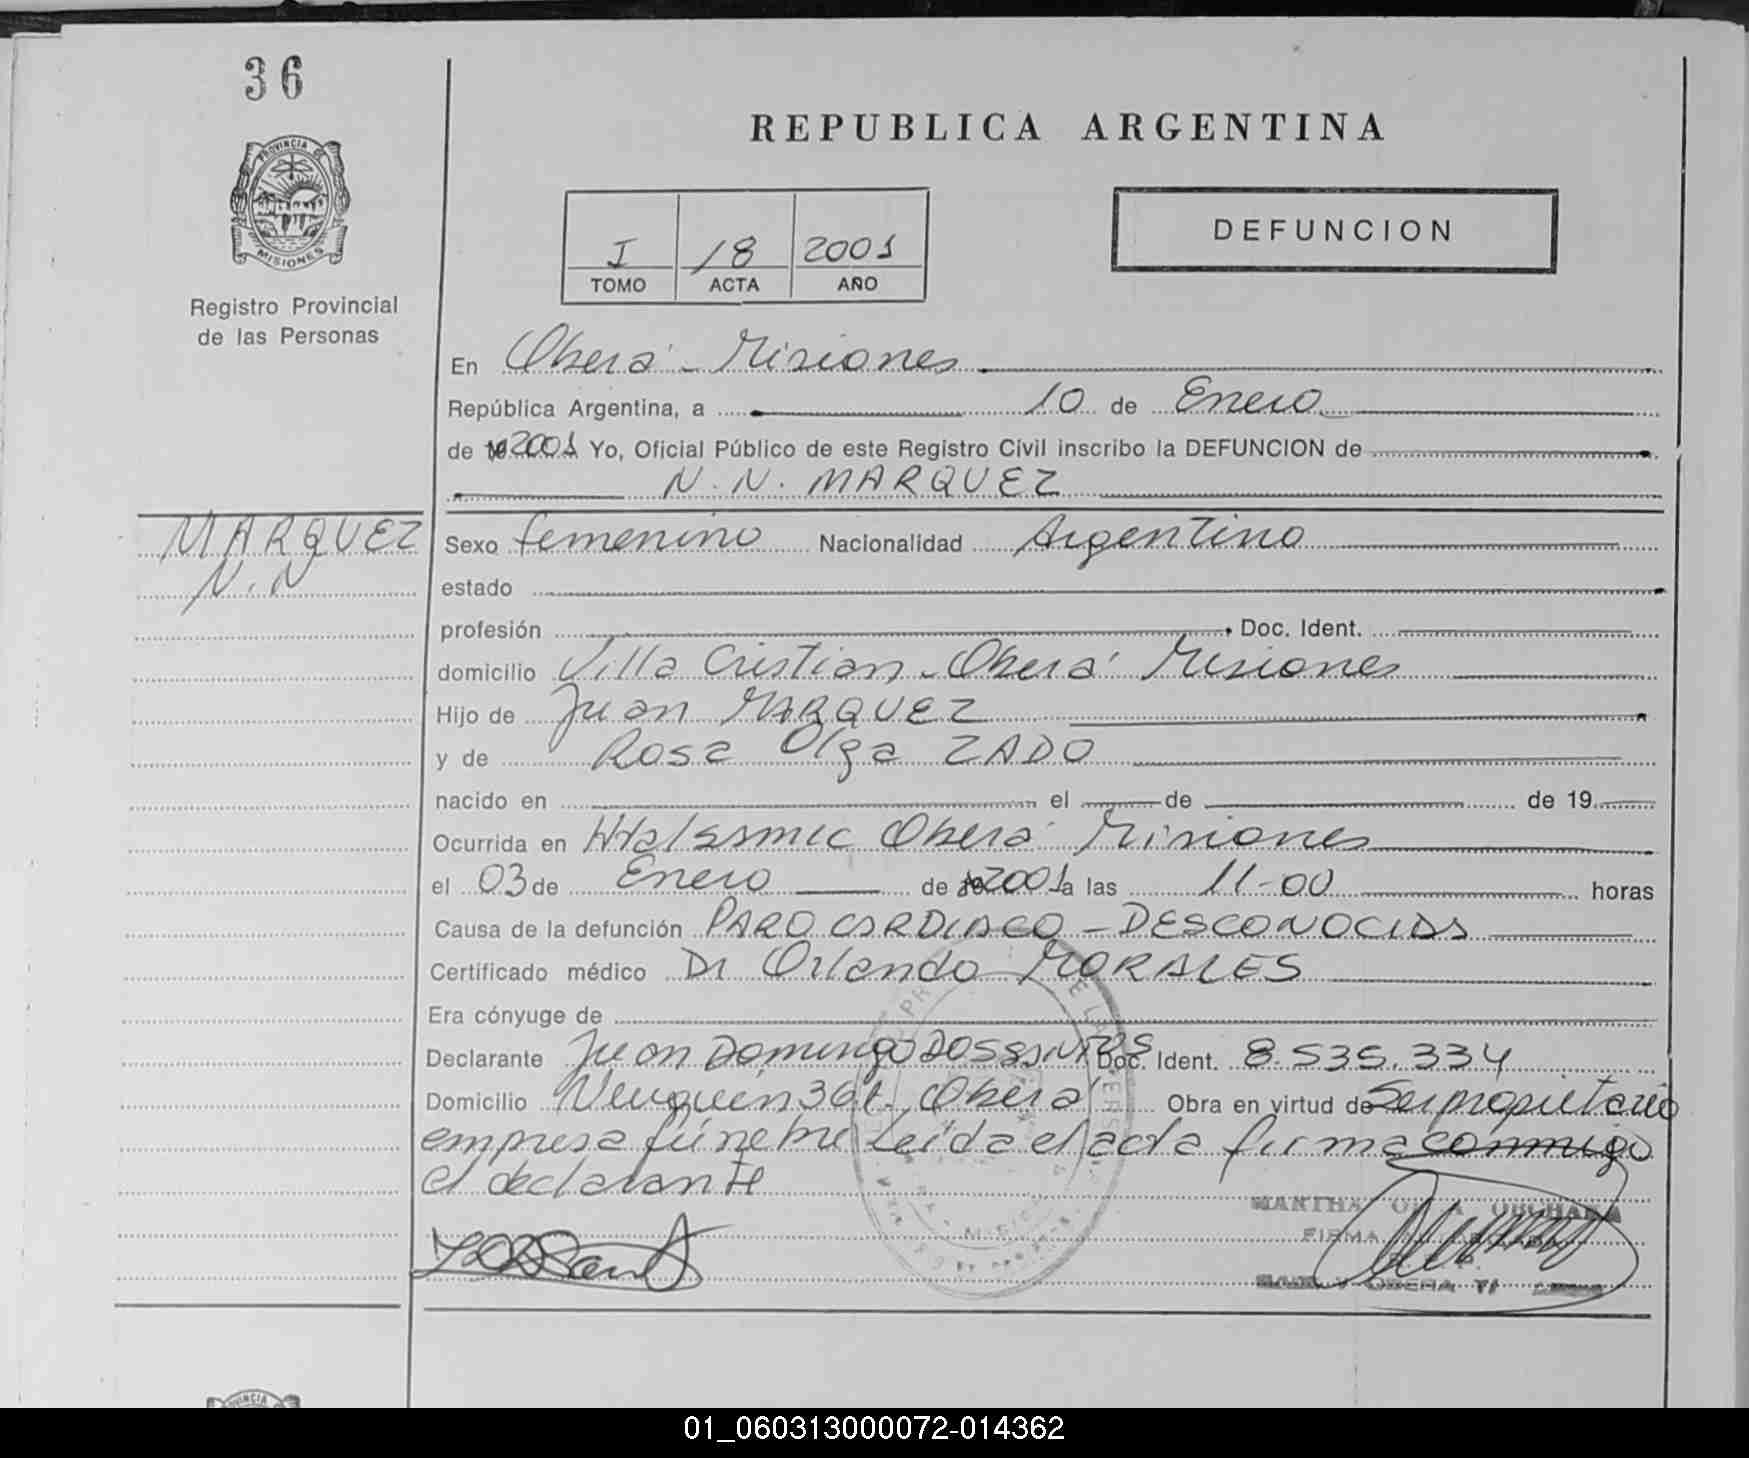 36
REPUBLICA ARGENTINA
PROVINCIA DE
MISIONES
DEFUNCION
I 18 2001
TOMO ACTA AÑO
Registro Provincial
de las Personas
En Oberá - Misiones
República Argentina, a 10 de Enero
de 2001 Yo, Oficial Público de este Registro Civil inscribo la DEFUNCION de
N.N. MARQUEZ
MARQUEZ
N.N
Sexo femenino Nacionalidad Argentina
estado
profesión Doc. Ident.
domicilio Villa Cristian - Oberá Misiones
Hijo de Juan MARQUEZ
y de Rosa Olga ZADO
nacido en el de de 19
Ocurrida en Oberá Misiones
el 03 de Enero de 2001 a las 11-00 horas
Causa de la defunción PARO CARDIACO - DESCONOCIDA
Certificado médico Dr Orlando MORALES
Era cónyuge de
Declarante Juan Domingo DOSSANTOS Doc. Ident. 8.535.334
Domicilio Neuquén Oberá Obra en virtud de Ser propietario
empresa fúnebre Leída el acta firma conmigo
el declarante
MARTHA
FIRMA
OBERA
01_060313000072-014362